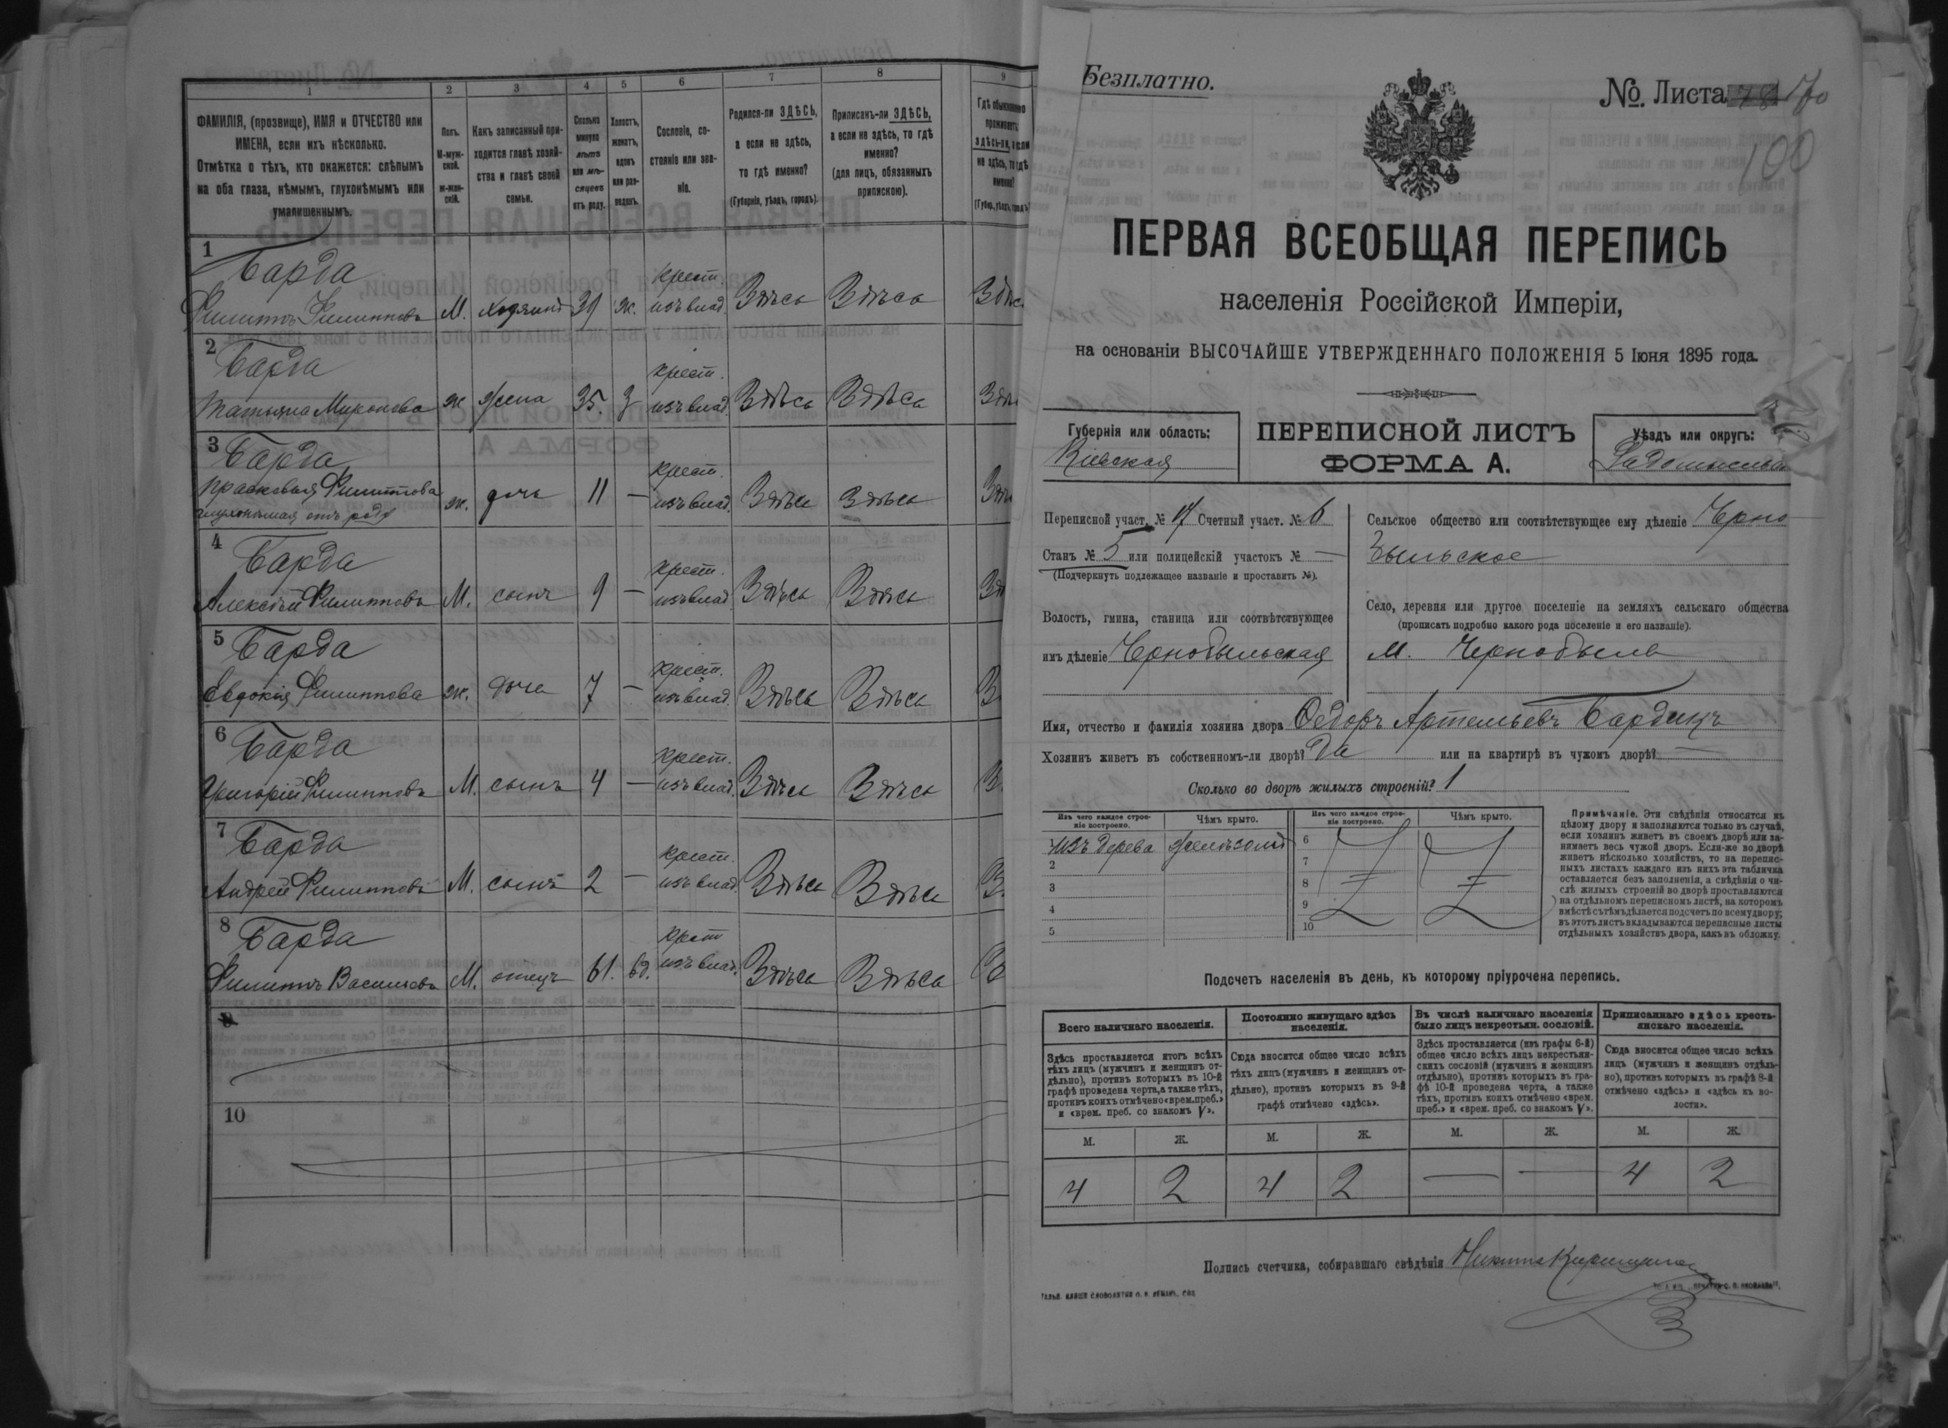 1
2
3
4
5
6
7
8
9
ФАМИЛІЯ, (прозвище), ИМЯ и ОТЧЕСТВО или
ИМЕНА, если ихъ нѣсколько.
Отмѣтка о тѣхъ, кто окажется: слѣпымъ
на оба глаза, нѣмымъ, глухонѣмымъ или
умалишеннымъ.
Полъ.
М-муж-
ской.
Ж-жен-
скій.
Какъ записанный при-
ходится главѣ хозяй-
ства и главѣ своей
семьи.
Сколько
минуло
лѣтъ
или мѣ-
сяцевъ
отъ роду.
Холостъ,
женатъ,
вдовъ
или раз-
веденъ.
Сословіе, со-
стояніе или зва-
ніе.
Родился-ли ЗДѢСЬ,
а если не здѣсь,
то гдѣ именно?
(Губернія, уѣздъ, городъ).
Приписанъ-ли ЗДѢСЬ,
а если не здѣсь, то гдѣ
именно?
(для лицъ, обязанныхъ
припискою).
Гдѣ обыкновенно
проживаетъ:
здѣсь-ли, а если
не здѣсь, то гдѣ
именно?
1
Барда
Филиппъ Филипповъ М. хозяинъ 39 ж. крест. изъ влад. Здѣсь Здѣсь
2
Барда
Татьяна Миронова ж жена 35. з крест. изъ влад. Здѣсь Здѣсь
3
Барда
Прасковья Филиппова ж. дочь 11 — крест. изъ влад. Здѣсь Здѣсь
глухонѣмая отъ роду
4
Барда
Алексѣй Филипповъ М. сынъ 9 — крест. изъ влад. Здѣсь Здѣсь
5
Барда
Евдокія Филиппова ж. дочь 7 — крест. изъ влад. Здѣсь Здѣсь
6
Барда
Григорій Филипповъ М. сынъ 4 — крест. изъ влад. Здѣсь Здѣсь
7
Барда
Андрей Филипповъ М. сынъ 2 — крест. изъ влад. Здѣсь Здѣсь
8
Барда
Филиппъ Васильевъ М. отецъ 61. вд. крест. изъ влад. Здѣсь Здѣсь
9
10
Безплатно.
№ Листа
100
ПЕРВАЯ ВСЕОБЩАЯ ПЕРЕПИСЬ
населенія Россійской Имперіи,
на основаніи ВЫСОЧАЙШЕ УТВЕРЖДЕННАГО ПОЛОЖЕНІЯ 5 Іюня 1895 года.
Губернія или область:
Кіевская
ПЕРЕПИСНОЙ ЛИСТЪ
ФОРМА А.
Уѣздъ или округъ:
Радомысльскій
Переписной участ. № 17 Счетный участ. № 6
Станъ № 5 или полицейскій участокъ № —
(Подчеркнуть подлежащее названіе и проставить №).
Волость, гмина, станица или соотвѣтствующее
имъ дѣленіе Чернобыльская
Сельское общество или соотвѣтствующее ему дѣленіе Черно
быльское
Село, деревня или другое поселеніе на земляхъ сельскаго общества
(прописать подробно какого рода поселеніе и его названіе).
м. Чернобыль
Имя, отчество и фамилія хозяина двора Ѳедоръ Артемьевъ Бардинъ
Хозяинъ живетъ въ собственномъ-ли дворѣ? Да или на квартирѣ въ чужомъ дворѣ? —
Сколько во дворѣ жилыхъ строеній? 1
Изъ чего каждое строе-
ніе построено.
Чѣмъ крыто.
Изъ чего каждое строе-
ніе построено.
Чѣмъ крыто.
1 изъ дерева
2
3
4
5
6
7
8
9
10
Примѣчаніе. Эти свѣдѣнія относятся къ
цѣлому двору и заполняются только въ случаѣ,
если хозяинъ живетъ въ своемъ дворѣ или за-
нимаетъ весь чужой дворъ. Если-же во дворѣ
живетъ нѣсколько хозяйствъ, то на перепис-
ныхъ листахъ каждаго изъ нихъ эта табличка
оставляется безъ заполненія, а свѣдѣнія о чи-
слѣ жилыхъ строеній во дворѣ проставляются
на отдѣльномъ переписномъ листѣ, на которомъ
вмѣстѣ съ тѣмъ дѣлается подсчетъ по всему двору;
въ этотъ листъ вкладываются переписные листы
отдѣльныхъ хозяйствъ двора, какъ въ обложку.
Подсчетъ населенія въ день, къ которому пріурочена перепись.
Всего наличнаго населенія.
Постоянно живущаго здѣсь
населенія.
Въ числѣ наличнаго населенія
было лицъ некрестьян. сословій.
Приписаннаго здѣсь кресть-
янскаго населенія.
Здѣсь проставляется итогъ всѣхъ
тѣхъ лицъ (мужчинъ и женщинъ от-
дѣльно), противъ которыхъ въ 10-й
графѣ проведена черта, а также тѣхъ,
противъ коихъ отмѣчено «врем. преб.»
и «врем. преб. со знакомъ V».
Сюда вносится общее число всѣхъ
тѣхъ лицъ (мужчинъ и женщинъ от-
дѣльно), противъ которыхъ въ 9-й
графѣ отмѣчено «здѣсь».
Здѣсь проставляется (изъ графы 6-й)
общее число всѣхъ лицъ некрестьян-
скихъ сословій (мужчинъ и женщинъ
отдѣльно), противъ которыхъ въ гра-
фѣ 10-й проведена черта, а также
тѣхъ, противъ коихъ отмѣчено «врем.
преб.» и «врем. преб. со знакомъ V».
Сюда вносится общее число всѣхъ
лицъ (мужчинъ и женщинъ отдѣль-
но), противъ которыхъ въ графѣ 8-й
отмѣчено «здѣсь» и «здѣсь въ во-
лости».
М. Ж. М. Ж. М. Ж. М. Ж.
4 2 4 2 — — 4 2
Подпись счетчика, собиравшаго свѣдѣнія Никита